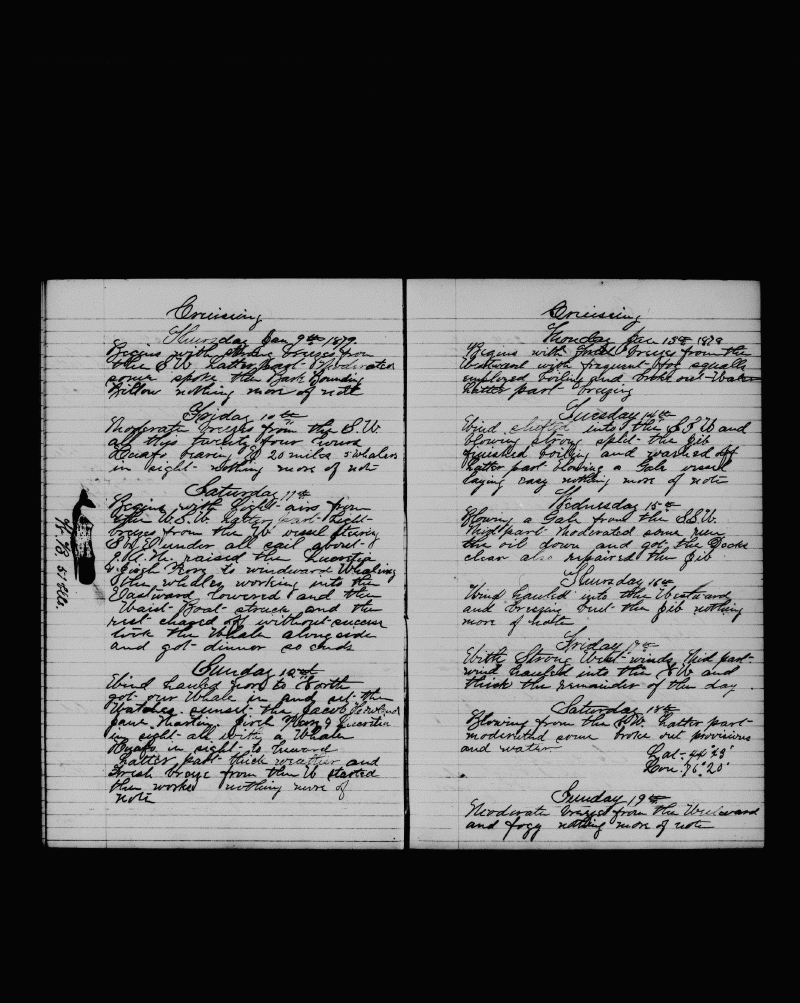 Cruising
Thursday Jan 9th 1879
Begins with strong breezes from
the S.W. Latter part Moderated
some spoke the Bark Bounding
Billow nothing more of note
Friday 10th
Moderate breezes from the S.W.
all this twenty four hours
Huafo bearing 20 miles whales
in sight nothing more of note
Saturday 11th
Begins with light airs from
the W.S.W. Latter part light
breezes from the W vessel
under all sail about
raised the Lucretia
to windward Whaling
the whales working into the
Eastward lowered and the
Waist Boat struck and the
rest chased off without success
took the Whale alongside
and got dinner so ends
Sunday 12th
Wind hauled from to North
got our Whale in and set the
Watches sunset the Jacob Howland
Mary & Lucretia
in sight all with a Whale
Huafo in sight to leeward
Latter part thick weather and
fresh breeze from the W started
the works nothing more of
note
Cruising
Monday Jan 13th 1879
Begins with fresh breezes from the
Westward with frequent squalls
employed boiling and broke out Water
Latter part breezing
Tuesday 14th
Wind shifted into the S.S.W and
blowing strong split the jib
finished boiling and washed off
Latter part blowing a Gale vessel
laying easy nothing more of note
Wednesday 15th
Blowing a Gale from the S.S.W.
Mid part Moderated some run
the oil down and got the Decks
clear also repaired the jib
Thursday 16th
Wind hauled into the Westward
and breezing bent the jib nothing
more of note
Friday 17th
With Strong West winds Mid part
wind hauled into the N W and
thick the remainder of the day
Saturday 18th
Blowing from the N.W. Latter part
moderated some broke out provisions
and water
Lat 44° 43'
Lon. 76° 20'
Sunday 19th
Moderate breezes from the Westward
and fogy nothing more of note